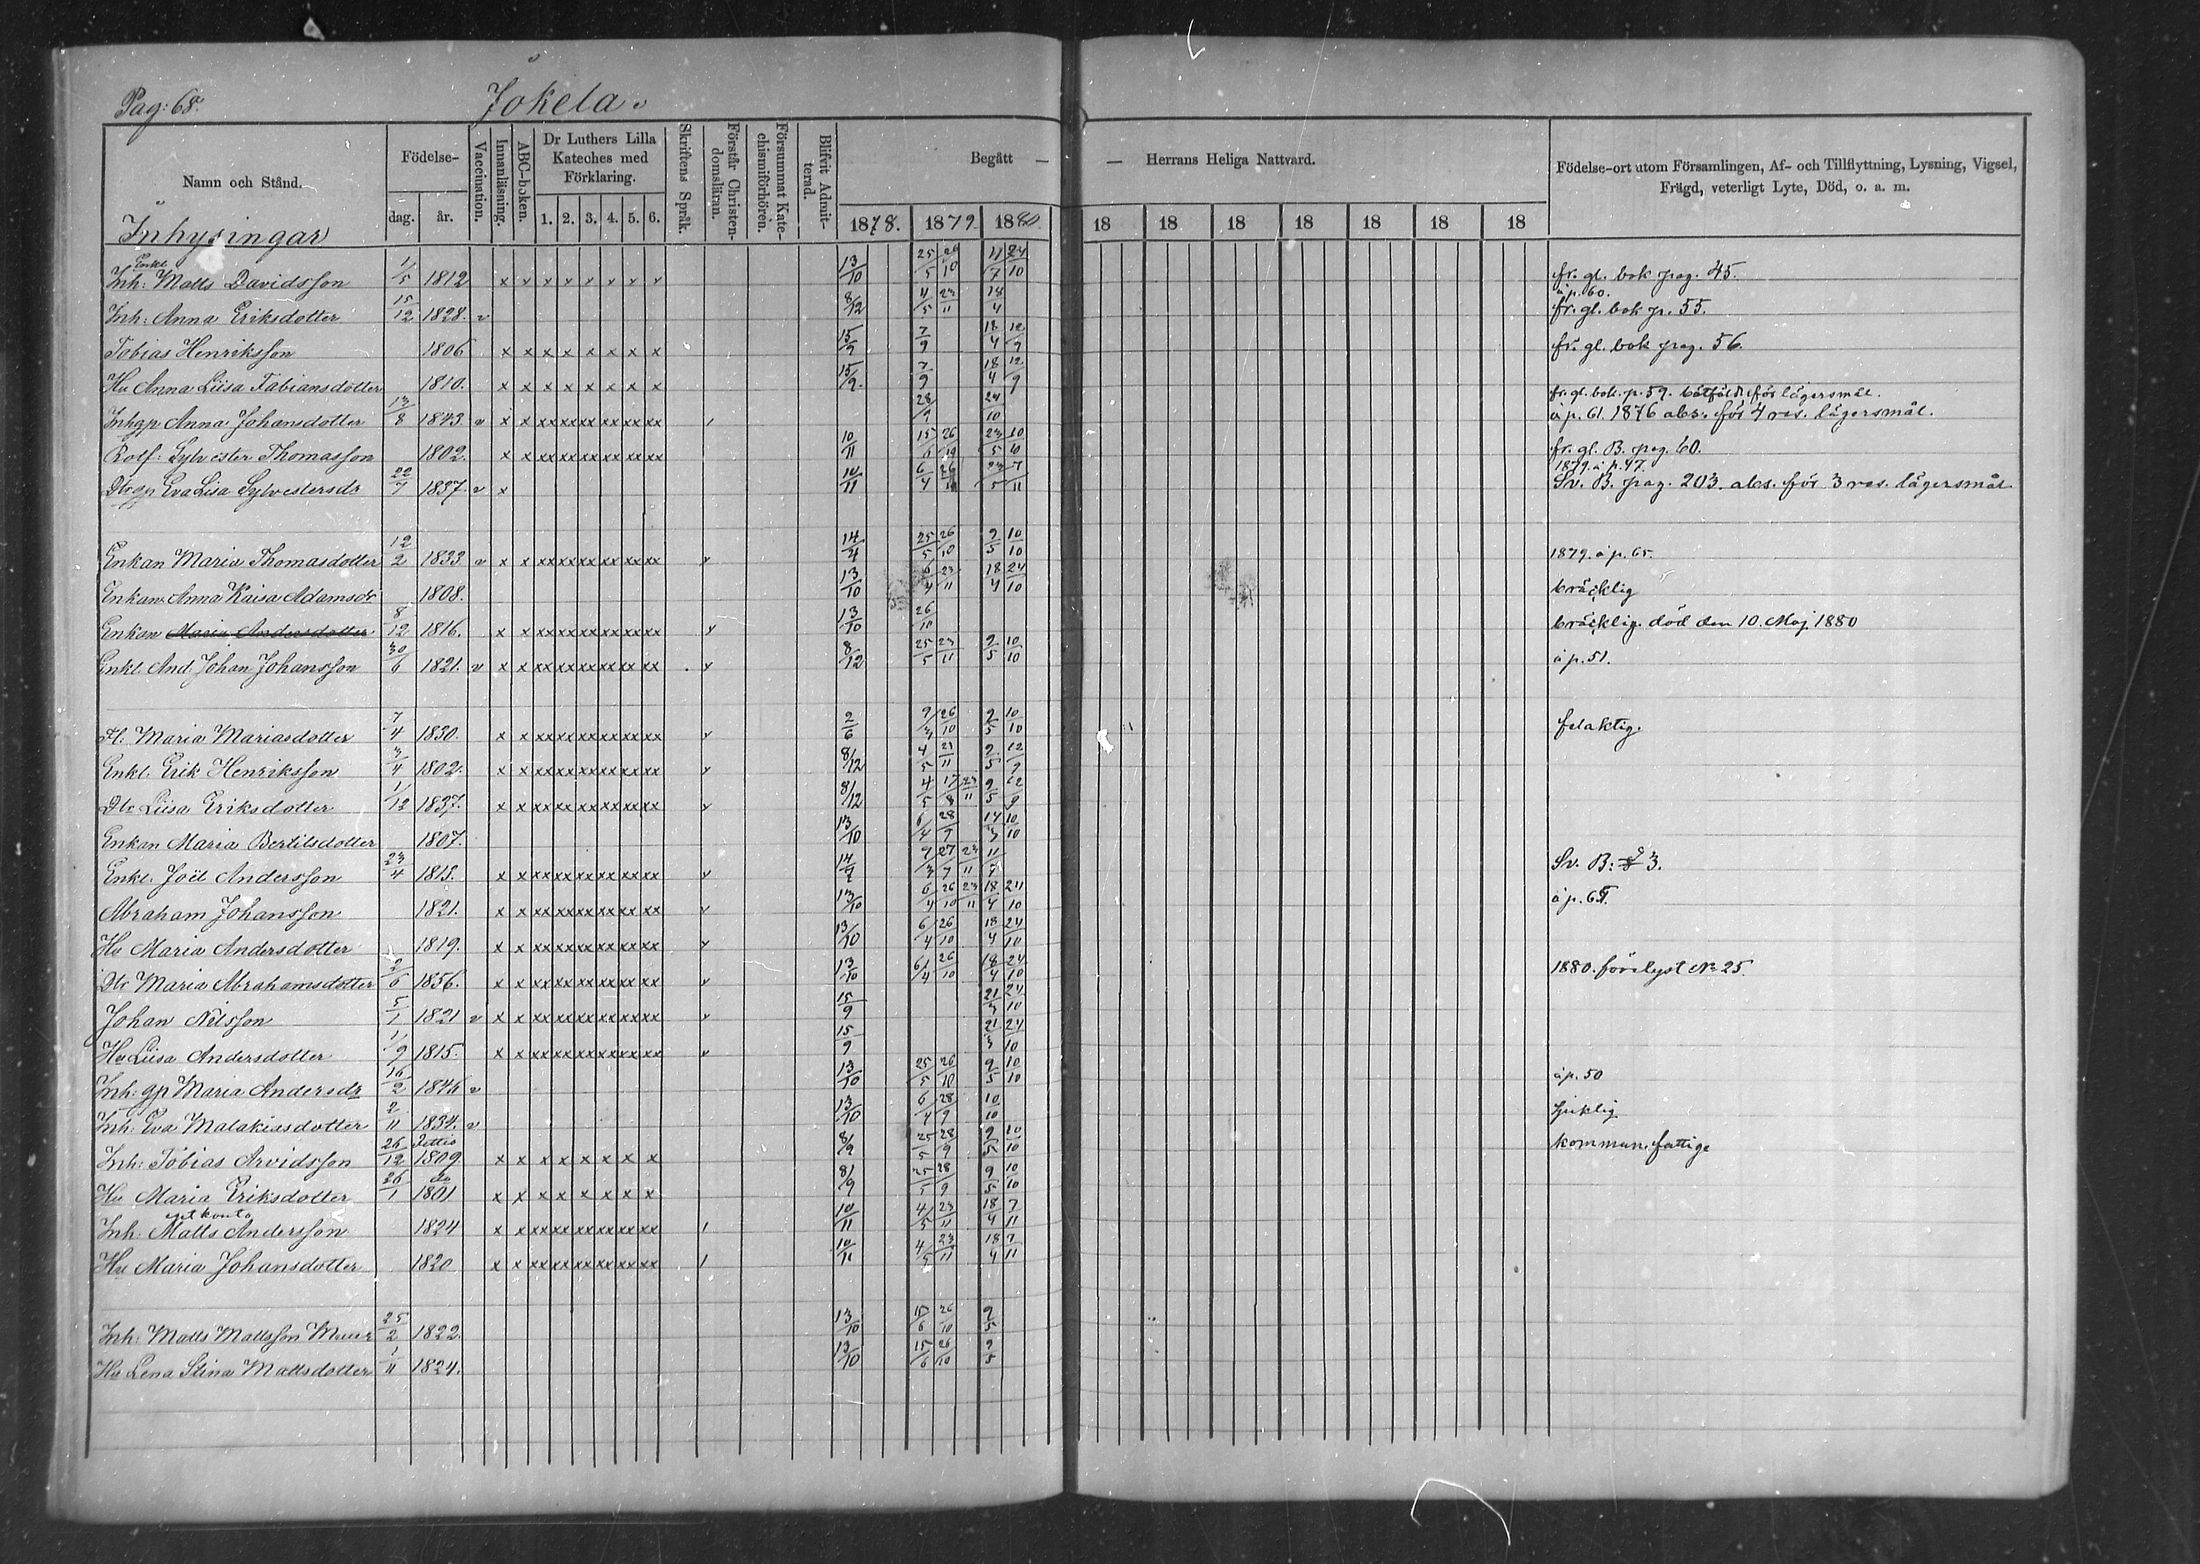 Pag: 68.
Jokela.
Namn och Stånd.
Födelse-
dag.
år.
Vaccination.
Innanläsning.
ABC-boken.
Dr Luthers Lilla
Kateches med
Förklaring.
1. 2. 3. 4. 5. 6.
Skriftens Språk.
Förstår Christen-
domsläran.
Försummat Kate-
chismiförhören.
Blifvit Admit-
terad.
Begått — — Herrans Heliga Nattvard.
1878. 1879. 1880. 18 18 18 18 18 18 18
Födelse-ort utom Församlingen, Af- och Tillflyttning, Lysning, Vigsel,
Frägd, veterligt Lyte, Död, o. a. m.
Inhysingar
Enkl.
Inh: Matts Davidsson 1/5 1812 x v v v v v v v 13/10 25/5 10 11/7 24/10 fr. gl. bok pag. 45.
å p. 60.
Inh: Anna Eriksdotter 15/12 1828. v 8/12 11/5 23/11 18/4 fr. gl. bok p. 55.
Tobias Henriksson 1806 x x x x x x x x 15/9 7/9 18/4 12/9 fr. gl. bok pag. 56.
Hu Anna Liisa Tabiansdotter 1810. x x x x x x x x 15/9. 7/9 18/4 12/9
fr. gl. bok. p. 59. för lägersmål.
Inhgp Anna Johansdotter 13/8 1843. v x x xx xx xx xx xx xx 28/9 24/10 å p. 61. 1876 abs. för 4 res. lägersmål.
Rotf: Sylvester Thomasson 1802. x x xx xx xx xx xx xx 10/11 15/6 26/10 23/5 10/6 fr. gl. B. pag. 60.
1879. å p. 47.
Dtr gp Eva Lisa Sylvestersdr 22/7 1837. v x 10/11 6/4 26 23/5 7/11 Sv. B. pag. 203. abs. för 3 res. lägersmål
Enkan Maria Thomasdotter 12/2 1833. v x x xx xx xx xx xx xx v 14/4 25/5 26/10 9/5 10/10 1879. å p. 65.
Enkan Anna Kaisa Adamsdr 1808. 13/10 6/4 23/11 18/4 24/10 bräcklig
Enkan Maria Andersdotter 8/12 1816. x x xx xx xx xx xx xx v 13/10 26/10 bräcklig. död den 10. Maj 1880
Enkl. And. Johan Johansson 30/6 1821. v x x xx xx xx xx xx xx . v 8/12 25/5 23/11 9/5 10/10 å p. 51.
Fl. Maria Mariasdotter 7/4 1830. x x xx xx xx xx xx xx v 2/6 9/3 26/10 9/5 10/10 felaktig.
Enkl. Erik Henriksson 3/4 1802. x x xx xx xx xx xx xx v 8/12 4/5 21/11 9/5 12/9
Dtr Liisa Eriksdotter 1/12 1837. x x xx xx xx xx xx xx v 8/12 4/5 17/8 23/11 9/5 12/9
Enkan Maria Bertilsdotter 1807. 13/10 6/4 28/9 14/3 10/10
Enkl. Joël Andersson 23/4 1813. x x xx xx xx xx xx xx v 14/7 9/3 27/7 23/11 11/7 Sv. B: 3.
Abraham Johansson 1821. x x xx xx xx xx xx xx v 13/10 6/4 26/10 23/11 18/4 24/10 å p. 65.
Hu Maria Andersdotter 1819. x x xx xx xx xx xx xx v 13/10 6/4 26/10 18/4 24/10
Dtr Maria Abrahamsdotter 2/6 1856. x x xx xx xx xx xx xx v 13/10 6/4 26/10 18/4 24/10 1880. förelyst No 25.
Johan Nilsson 5/1 1821 v x x xx xx xx xx xx xx v 15/9 21/3 24/10
Hu Liisa Andersdotter 1/9 1815. x x xx xx xx xx xx xx v 15/9 21/3 24/10
Inh: gp Maria Andersdr 16/2 1846 v 13/10 25/5 26/10 9/5 10/10 å p. 50
Inh: Eva Malakiasdotter 2/11 1834. v 13/10 6/4 28/9 10/10 sjuklig
Inh: Tobias Arvidsson 26/12 1809 x x x x x x x x 8/9 25/5 28/9 9/5 10/10 kommun. fattige
Hu Maria Eriksdotter 26/1 1801 x x x x x x x x 8/9 25/5 28/9 9/5 10/10
Inh: Matts Andersson 1824 x x xx xx xx xx xx xx 1 10/11 4/5 23/11 18/4 7/11
Hu Maria Johansdotter 1820 x x xx xx xx xx xx xx 1 10/11 4/5 23/11 18/4 7/11
Inh: Matts Mattsson 25/2 1822. 13/10 15/6 26/10 9/5
Hu Lena Stina Mattsdotter 1/11 1824. 13/10 15/6 26/10 9/5